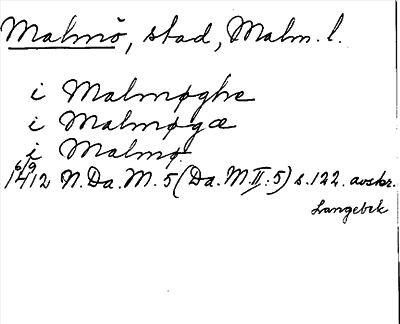 Malmö, stad, Malm. l.
i Malmøghe
i Malmøgæ
i Malmø.
16/9 1412 N. Da. M. 5 (Da. M. II: 5) s. 122. avskr.
Langebek